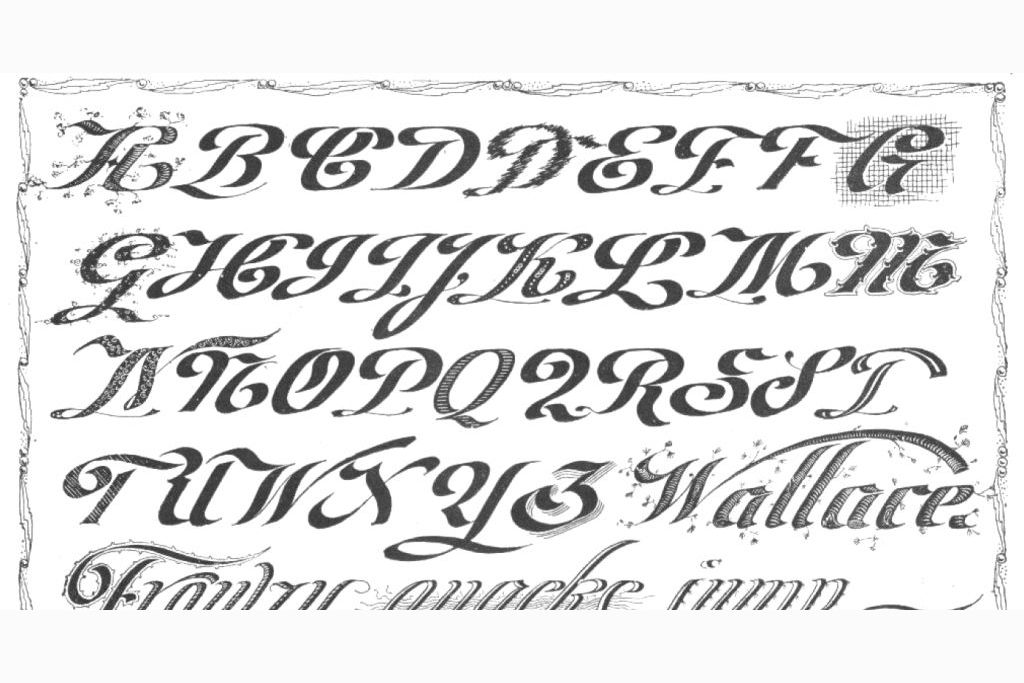 A B C D D E E F G
G H I I J K L M M
N N O P Q Q R S S T
T U W X Y Z Wallace.
Frowzy quacks jump